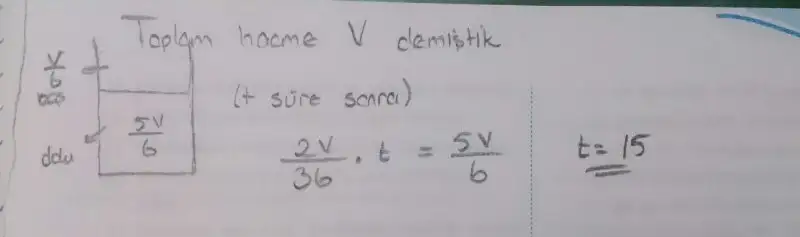 Toplam hacme V demiştik
V/6
boş
5V/6
dolu
(t süre sonra)
2V/36 . t = 5V/6
t = 15